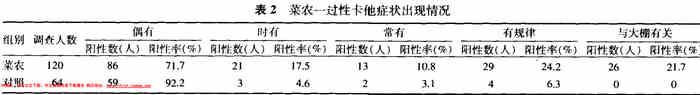 表 2 菜农一过性卡他症状出现情况
组别 调查人数 偶有 时有 常有 有规律 与大棚有关
阳性数(人) 阳性率(%) 阳性数(人) 阳性率(%) 阳性数(人) 阳性率(%) 阳性数(人) 阳性率(%) 阳性数(人) 阳性率(%)
菜农 120 86 71.7 21 17.5 13 10.8 29 24.2 26 21.7
对照 64 59 92.2 3 4.6 2 3.1 4 6.3 0 0